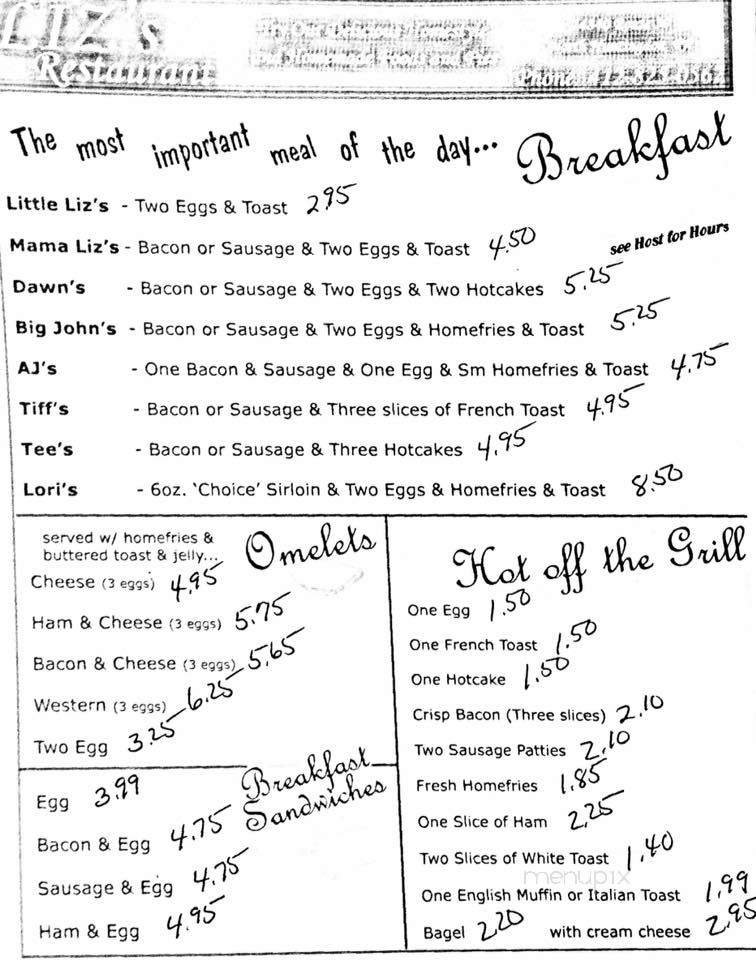 LIZ's
Restaurant
The most important meal of the day... Breakfast
Little Liz's - Two Eggs & Toast 2.95
Mama Liz's - Bacon or Sausage & Two Eggs & Toast 4.50
see Host for Hours
Dawn's - Bacon or Sausage & Two Eggs & Two Hotcakes 5.25
Big John's - Bacon or Sausage & Two Eggs & Homefries & Toast 5.25
AJ's - One Bacon & Sausage & One Egg & Sm Homefries & Toast 4.75
Tiff's - Bacon or Sausage & Three slices of French Toast 4.95
Tee's - Bacon or Sausage & Three Hotcakes 4.95
Lori's - 6oz. ‘Choice’ Sirloin & Two Eggs & Homefries & Toast 8.50
served w/ homefries &
buttered toast & jelly...
Omelets
Cheese (3 eggs) 4.95
Ham & Cheese (3 eggs) 5.75
Bacon & Cheese (3 eggs) 5.65
Western (3 eggs) 6.25
Two Egg 3.25
Breakfast
Sandwiches
Egg 3.99
Bacon & Egg 4.75
Sausage & Egg 4.75
Ham & Egg 4.95
Hot off the Grill
One Egg 1.50
One French Toast 1.50
One Hotcake 1.50
Crisp Bacon (Three slices) 2.10
Two Sausage Patties 2.10
Fresh Homefries 1.85
One Slice of Ham 2.25
Two Slices of White Toast 1.40
menupix
One English Muffin or Italian Toast 1.99
Bagel 2.20 with cream cheese 2.95